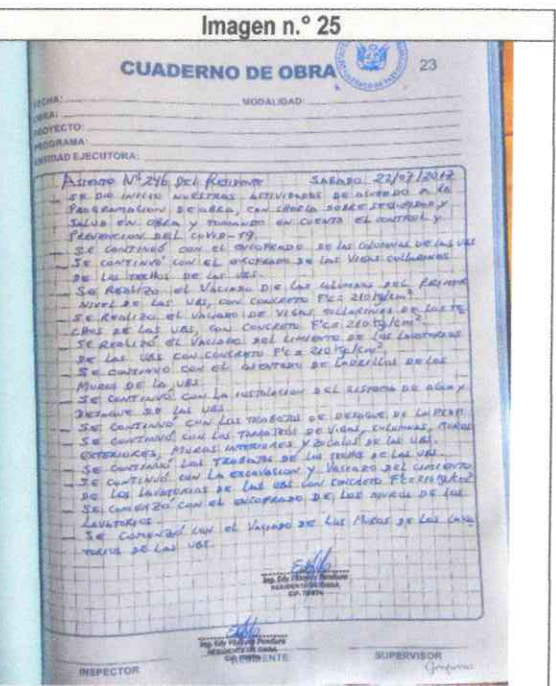 Imagen n.° 25
CUADERNO DE OBRA
23
FECHA:
MODALIDAD:
OBRA:
PROYECTO:
PROGRAMA:
ENTIDAD EJECUTORA:
Asiento N° 246 Del Residente Sabado 22/07/2017
- SE DIO INICIO NUESTRAS ACTIVIDADES DE ACUERDO A LA
PROGRAMACION DE OBRA, CON CHARLA SOBRE SEGURIDAD Y
SALUD EN OBRA Y TOMANDO EN CUENTA EL CONTROL Y
PREVENCION DEL COVID-19.
- SE CONTINUÓ CON EL ENCOFRADO DE LAS COLUMNAS DE LAS UBS
- SE CONTINVÓ CON EL ENCOFRADO DE LAS VIGAS COLLARINES
DE LOS TECHOS DE LAS UBS.
- SE REALIZO EL VACIADO DE LAS COLUMNAS DEL PRIMER
NIVEL DE LAS UBS, CON CONCRETO F'c= 210 kg/cm².
- SE REALIZO EL VACIADO DE VIGAS COLLARINES DE LOS TE
CHOS DE LAS UBS, CON CONCRETO F'c= 210 kg/cm².
- SE REALIZÓ EL VACIADO DEL CIMIENTO DE LOS LAVATORIOS
DE LAS UBS CON CONCRETO F'c= 210 kg/cm².
- SE CONTINVO CON EL ASENTADO DE LADRILLOS DE LOS
MUROS DE LA UBS.
- SE CONTINVÓ CON LA INSTALACION DEL SISTEMA DE AGUA Y
DESAGUE DE LAS UBS.
- SE CONTINVÓ CON LOS TRABAJOS DE DESAGUE DE LA
- SE CONTINVÓ CON LOS TARRAJEOS DE VIGAS, COLUMNAS, MUROS
EXTERIORES, MUROS INTERIORES Y ZOCALOS DE LAS UBS.
- SE CONTINVÓ LOS TRABAJOS DE LOS DE LAS UBS.
- SE CONTINVÓ CON LA EXCAVACION Y VACIADO DEL CIMIENTO
DE LOS LAVATORIOS DE LAS UBS CON CONCRETO F'c= 210 kg/cm²
- SE COMENZÓ CON EL ENCOFRADO DE LOS MUROS DE LOS
LAVATORIOS.
- SE COMENZÓ CON EL VACIADO DE LOS MUROS DE LOS LAVA
TORIOS DE LAS UBS.
Ing. Edy
RESIDENTE DE OBRA
Ing. Edy
RESIDENTE DE OBRA
INSPECTOR
RESIDENTE
SUPERVISOR